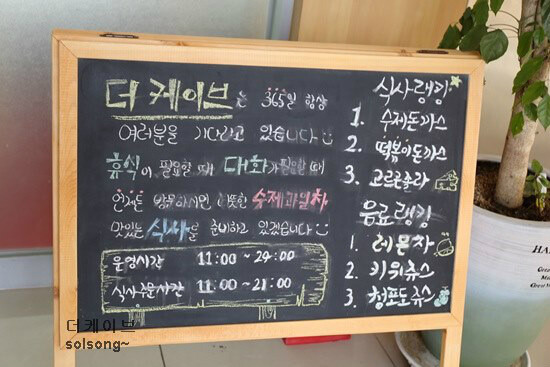 더 케이브는 365일 항상
여러분을 기다리고 있습니다
휴식이 필요할 때 대화가 필요할 때
언제든 방문하시면 따뜻한 수제과일차
맛있는 식사를 준비하고 있겠습니다
운영시간 11:00 ~ 24:00
식사주문시간 11:00 ~ 21:00
식사랭킹
1. 수제돈까스
2. 떡볶이돈까스
3. 고르곤졸라
음료랭킹
1. 레몬차
2. 키위쥬스
3. 청포도쥬스
더케이브
solsong~